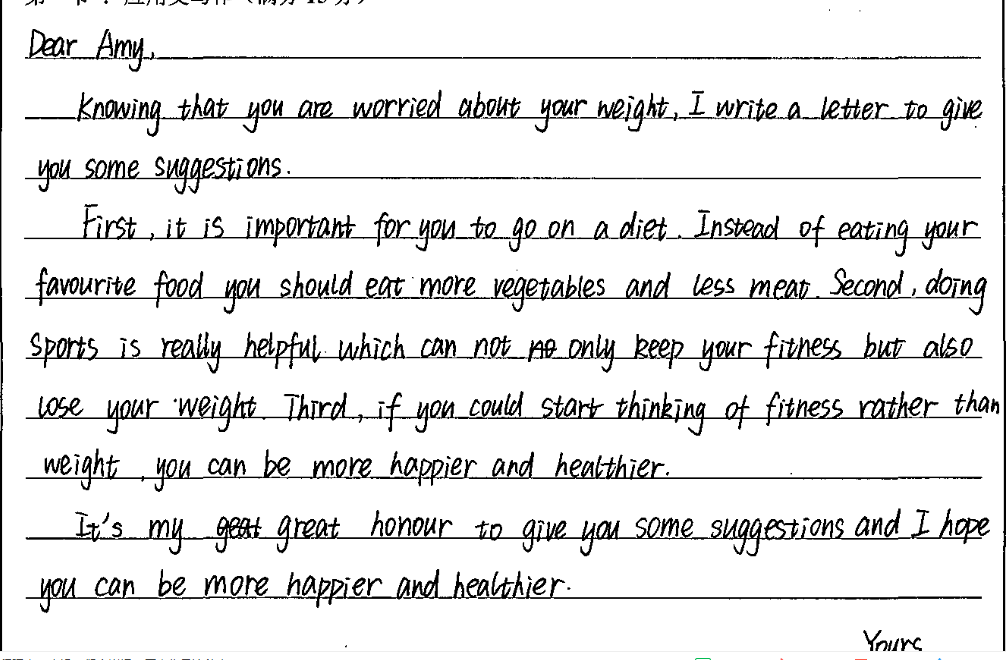 Dear Amy,
Knowing that you are worried about your weight, I write a letter to give
you some suggestions.
First, it is important for you to go on a diet. Instead of eating your
favourite food you should eat more vegetables and less meat. Second, doing
sports is really helpful which can not no only keep your fitness but also
lose your weight. Third, if you could start thinking of fitness rather than
weight, you can be more happier and healthier.
It's my geat great honour to give you some suggestions and I hope
you can be more happier and healthier.
Yours